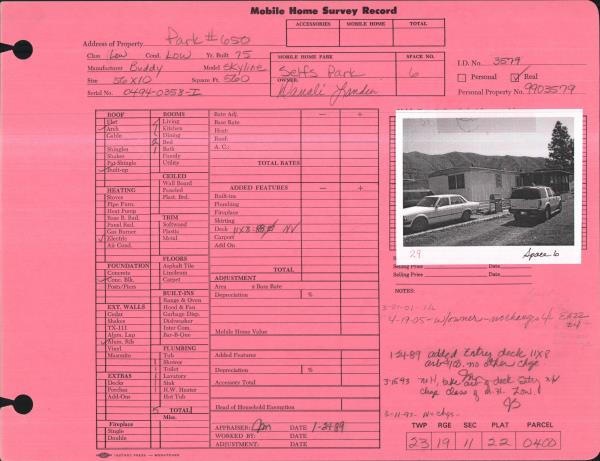 Mobile Home Survey Record
ACCESSORIES MOBILE HOME TOTAL
Address of Property Park #650
Class Low Cond. Low Yr. Built 75
Manufacturer Buddy Model Skyline
Size 56x10 Square Ft. 560
Serial No. 0494-0358-I
MOBILE HOME PARK SPACE NO.
Selfs Park 6
OWNER:
I.D. No. 3579
Personal ✓ Real
Personal Property No. 9903579
ROOF
Flat
✓ Arch
Gable
Shingles
Shakes
Pat-Shingle
✓ Built-up
HEATING
Stoves
Pipe Furn.
Heat Pump
Base B. Rad.
Panel Rad.
Gas Burner
✓ Electric
Air Cond.
FOUNDATION
Concrete
✓ Conc. Blk.
Posts/Piers
EXT. WALLS
Cedar
Shakes
TX-111
Alum. Lap
✓ Alum. Rib
Vinyl
Masonite
EXTRAS
Decks
Porches
Add-Ons
Fireplace
Single
Double
ROOMS
Living
Kitchen
Dining
2 Bed
1 Bath
Family
Utility
CEILED
Wall Board
Paneled
Plast. Brd.
TRIM
Softwood
Plastic
Metal
FLOORS
Asphalt Tile
Linoleum
Carpet
BUILT-INS
Range & Oven
Hood & Fan
Garbage Disp.
Dishwasher
Inter Com.
Bar-B-Que
PLUMBING
Tub
1 Shower
1 Toilet
1 Lavatory
1 Sink
1 H.W. Heater
Hot Tub
5 TOTAL
Misc.
Rate Adj. — +
Base Rate
Heat:
Roof:
A. C.:
TOTAL RATES
ADDED FEATURES — +
Built-ins
Plumbing
Fireplace
Skirting
Deck 11x8 NV
Carport
Add On
TOTAL
ADJUSTMENT
Area x Base Rate
Depreciation %
Mobile Home Value
Added Features
Depreciation %
Accessory Total
Head of Household Exemption
APPRAISER: DATE 1-24-89
WORKED BY: DATE
ADJUSTMENT: DATE
29 Space 6
Selling Price Date
Selling Price Date
NOTES:
4-19-05-w/owner-
1-24-89 added Entry deck 11x8
no other chge
TWP RGE SEC PLAT PARCEL
23 19 11 22 0400